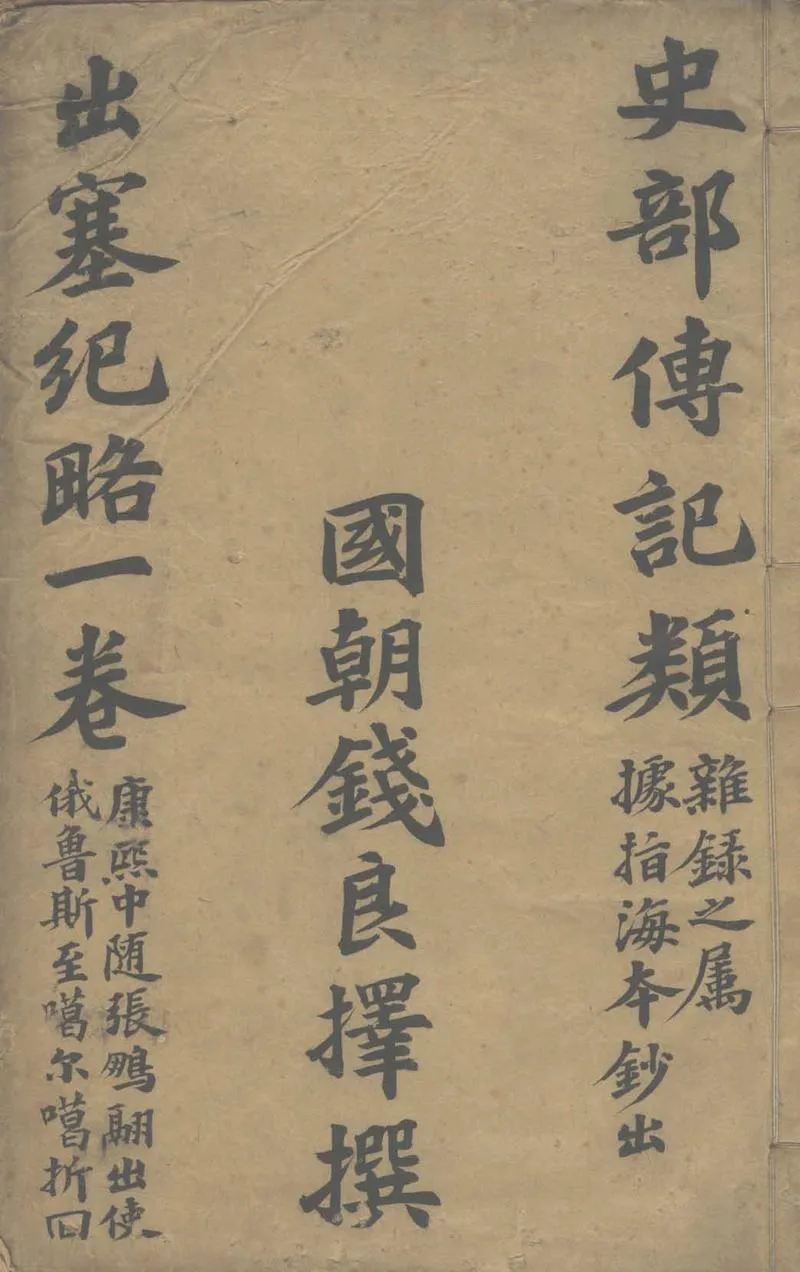 史部傳記類
雜録之属
據指海本鈔出
國朝錢良擇撰
出塞纪略一卷
康熙中随張鵬翮出使
俄魯斯至噶尔噶折回